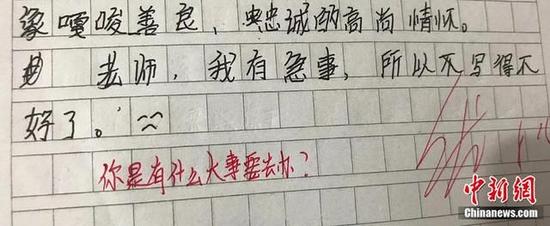 象嘎唆善良，忠诚的高尚情怀。
老师，我有急事，所以不写得不
好了。
你是有什么大事要去办？
中新网
Chinanews.com